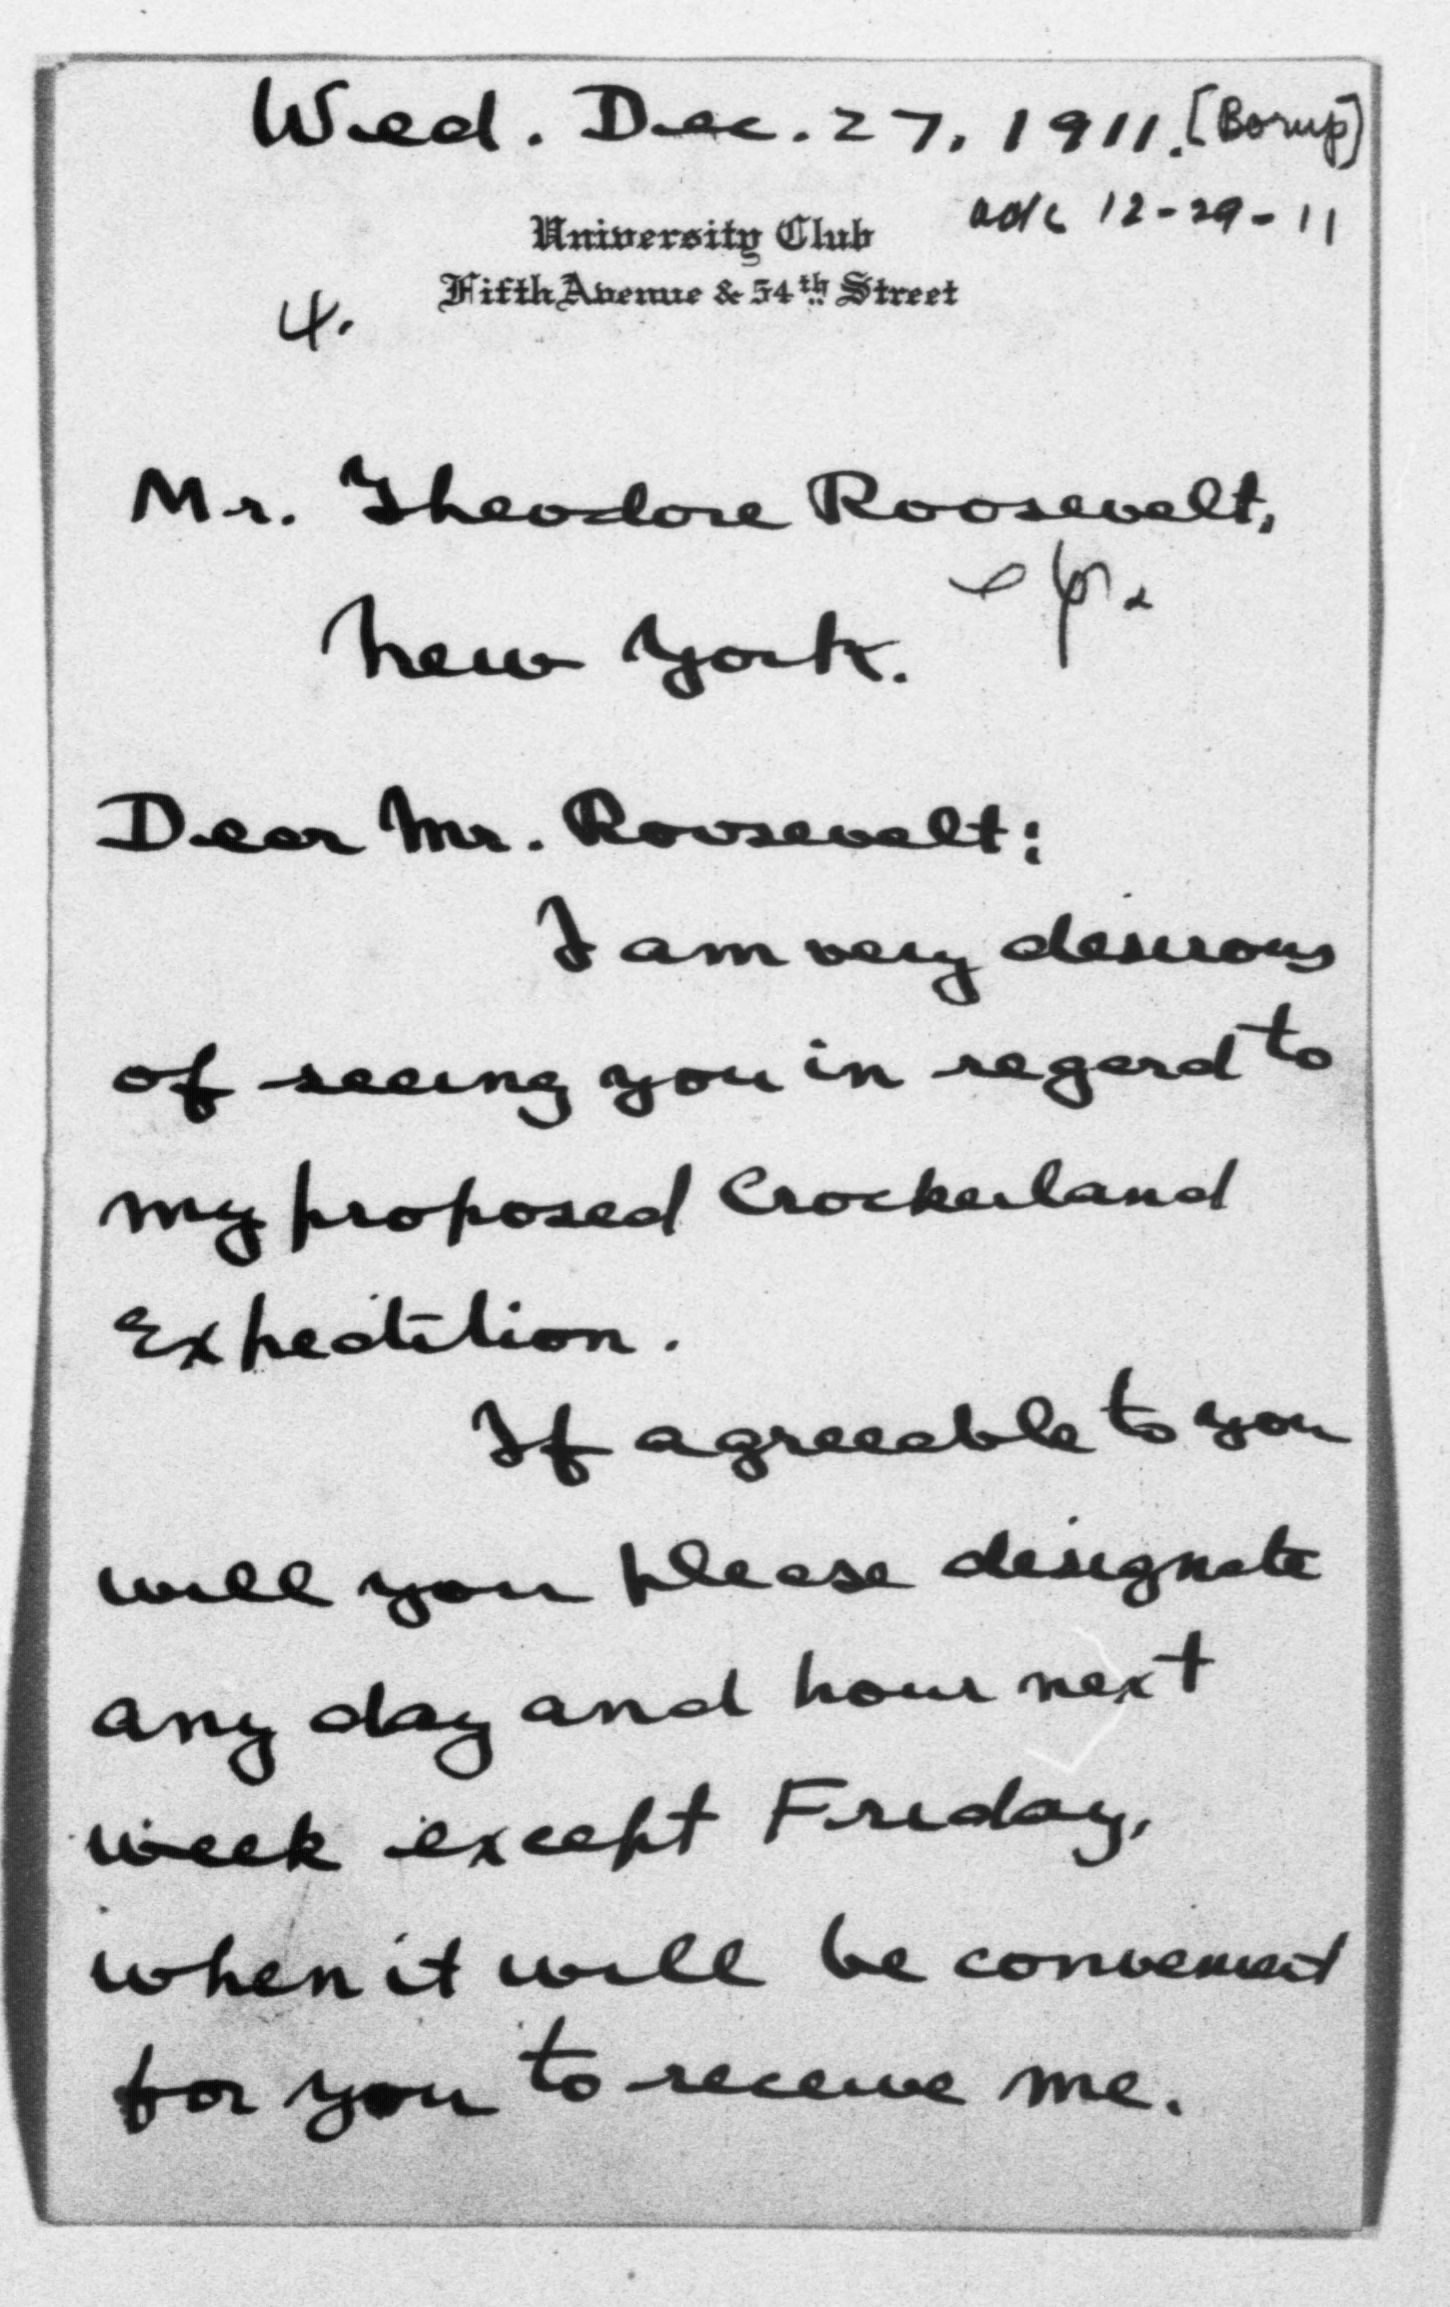 Wed. Dec. 27, 1911. [Borup]
University Club
ack 12-29-11
Fifth Avenue & 54th Street
4.
Mr. Theodore Roosevelt,
New York.
Dear Mr. Roosevelt:
I am very desirous
of seeing you in regard to
my proposed Crockerland
Expedition.
If agreeable to you
will you please designate
any day and hour next
week except Friday,
when it will be convenient
for you to receive me.